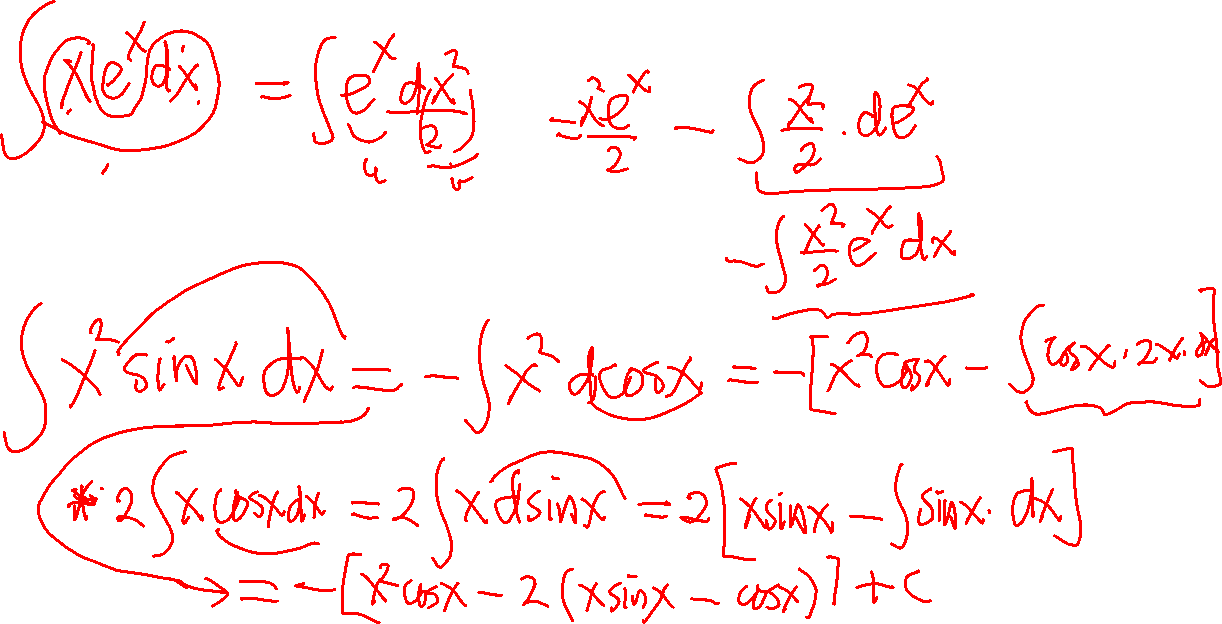 ∫ x e^x dx = ∫ e^x d(x²/2) = x²e^x/2 − ∫ x²/2 · de^x
u v
− ∫ x²/2 e^x dx
∫ x² sinx dx = − ∫ x² dcosx = −[x² cosx − ∫ cosx · 2x · dx]
* 2 ∫ x cosx dx = 2 ∫ x dsinx = 2[xsinx − ∫ sinx · dx]
→ = −[x² cosx − 2(xsinx − cosx)] + C